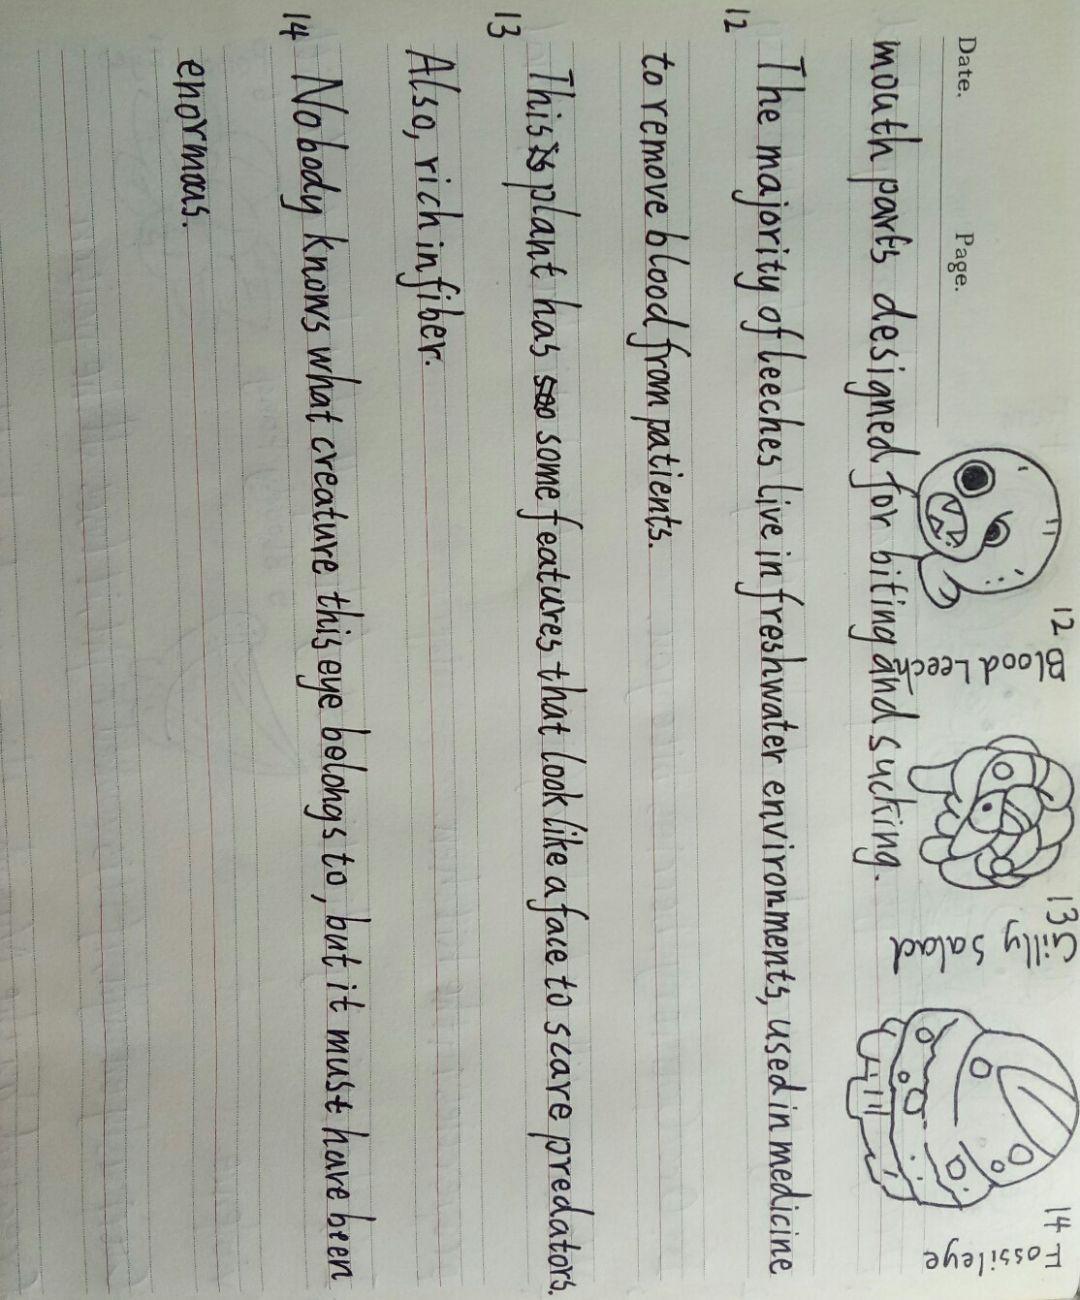 Date.
Page.
12
Blood Leech
13
Gilly Salad
14
Fossileye
mouth parts designed for biting and sucking.
12
The majority of leeches live in freshwater environments, used in medicine
to remove blood from patients.
13
This plant has some features that look like a face to scare predators.
Also, rich in fiber.
14
Nobody knows what creature this eye belongs to, but it must have been
enormous.